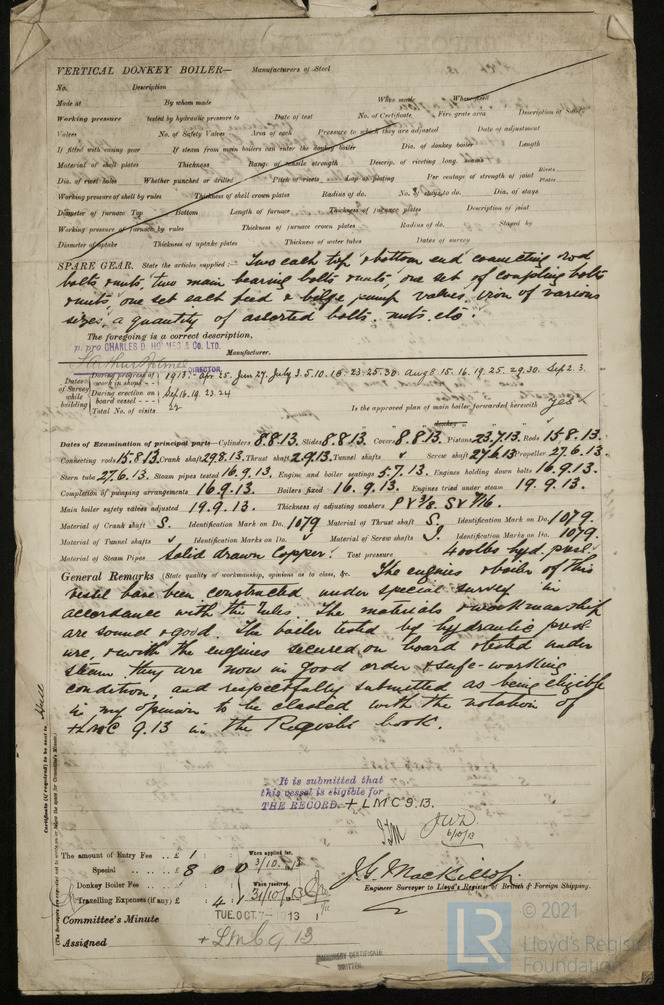 VERTICAL DONKEY BOILER— Manufacturers of Steel
No. Description
Made at By whom made When made Where fixed
Working pressure tested by hydraulic pressure to Date of test No. of Certificate Fire grate area Description of Safety
Valves No. of Safety Valves Area of each Pressure to which they are adjusted Date of adjustment
If fitted with easing gear If steam from main boilers can enter the donkey boiler Dia. of donkey boiler Length
Material of shell plates Thickness Range of tensile strength Descrip. of riveting long. seams
Dia. of rivet holes Whether punched or drilled Pitch of rivets Lap of plating Per centage of strength of joint Rivets Plates
Working pressure of shell by rules Thickness of shell crown plates Radius of do. No. of stays to do. Dia. of stays
Diameter of furnace Top Bottom Length of furnace Thickness of furnace plates Description of joint
Working pressure of furnace by rules Thickness of furnace crown plates Radius of do. Stayed by
Diameter of uptake Thickness of uptake plates Thickness of water tubes Dates of survey
SPARE GEAR. State the articles supplied:— Two each top & bottom end connecting rod
bolts & nuts, two main bearing bolts & nuts, one set of coupling bolts
& nuts, one set each feed & bilge pump valves, iron of various
sizes, a quantity of assorted bolts, nuts, etc.
The foregoing is a correct description,
p. pro CHARLES D. HOLMES & Co. LTD. Manufacturer.
Arthur Holmes DIRECTOR.
Dates of Survey while building
During progress of work in shops - - 1913:- Apr 25. Jun 27. July 3. 5. 10. 16. 23. 25. 30. Aug 8. 15. 16. 19. 25. 29. 30. Sep 2. 3.
During erection on board vessel - - - Sep 16. 19. 23. 24
Total No. of visits 22 Is the approved plan of main boiler forwarded herewith Yes
" " " donkey " " "
Dates of Examination of principal parts—Cylinders 8.8.13. Slides 8.8.13. Covers 8.8.13. Pistons 23.7.13. Rods 15.8.13.
Connecting rods 15.8.13. Crank shaft 29.8.13. Thrust shaft 2.9.13. Tunnel shafts ✓ Screw shaft 27.6.13 Propeller 27.6.13.
Stern tube 27.6.13. Steam pipes tested 16.9.13. Engine and boiler seatings 5.7.13. Engines holding down bolts 16.9.13.
Completion of pumping arrangements 16.9.13. Boilers fixed 16.9.13. Engines tried under steam 19.9.13.
Main boiler safety valves adjusted 19.9.13. Thickness of adjusting washers P V 3/8. S V 7/16.
Material of Crank shaft S. Identification Mark on Do. 1079 Material of Thrust shaft S. Identification Mark on Do. 1079.
Material of Tunnel shafts ✓ Identification Marks on Do. ✓ Material of Screw shafts S. Identification Marks on Do. 1079.
Material of Steam Pipes Solid drawn Copper. Test pressure 400 lbs hyd. press.
General Remarks (State quality of workmanship, opinions as to class, &c. The engines & boiler of this
vessel have been constructed under special survey in
accordance with the Rules. The materials & workmanship
are sound & good. The boiler tested by hydraulic press
ure, & with the engines secured on board & tested under
steam they are now in good order & safe working
condition, and respectfully submitted as being eligible
in my opinion to be classed with the notation of
+LMC 9.13 in the Register book.
Certificate (if required) to be sent to Hull
(The Surveyors are requested not to write on or below the space for Committee's Minute.)
It is submitted that
this vessel is eligible for
THE RECORD. + LMC 9.13.
JWD
6/10/13
The amount of Entry Fee .. £ 1 : When applied for,
Special .. .. £ 8 0 0 3/10. 13
Donkey Boiler Fee .. .. £ : When received,
Travelling Expenses (if any) £ 4 31/10/13
J. G. Mackillop.
Engineer Surveyor to Lloyd's Register of British & Foreign Shipping.
Committee's Minute TUE. OCT. 7 - 1913
Assigned + LMC 9.13
MACHINERY CERTIFICATE
WRITTEN.
LR © 2021
Lloyd's Register
Foundation